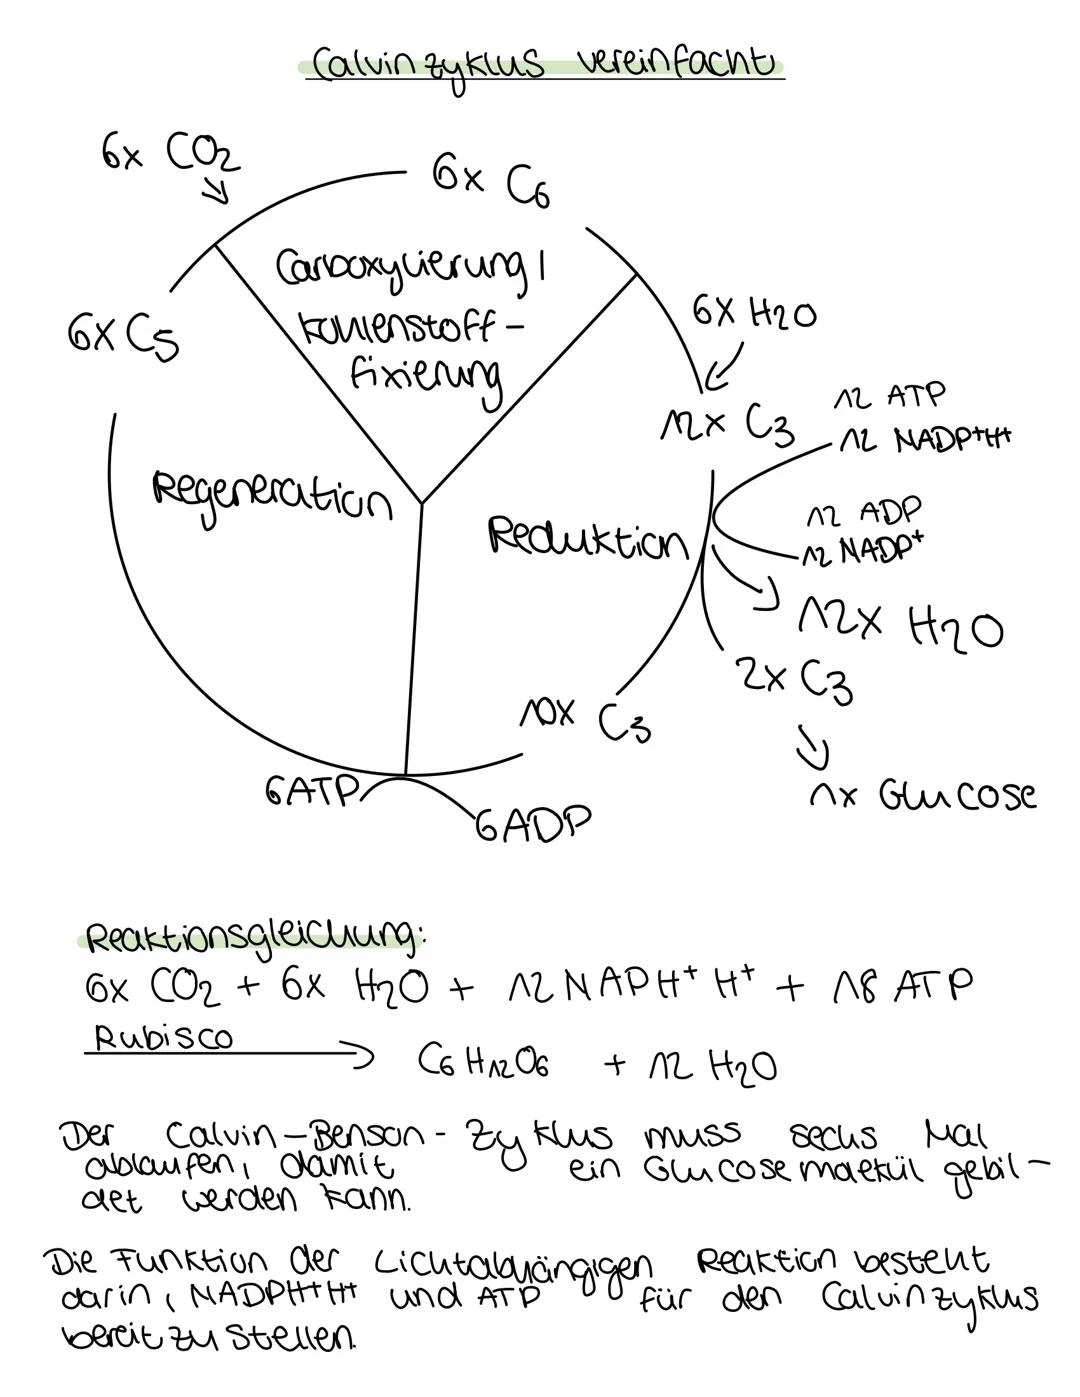 Calvinzyklus vereinfacht
6x CO2
6x C6
Carboxylierung /
Kohlenstoff-
fixierung
6x C5
6x H2O
12x C3
12 ATP
12 NADP+H+
Regeneration
Reduktion
12 ADP
12 NADP+
12x H2O
2x C3
10x C3
1x Glucose
6ATP
6ADP
Reaktionsgleichung:
6x CO2 + 6x H2O + 12 NAPH+ H+ + 18 ATP
Rubisco
C6H12O6 + 12 H2O
Der Calvin-Benson-Zyklus muss sechs Mal
ablaufen, damit ein Glucosemoekül gebil-
det werden kann.
Die Funktion der Lichtabhängigen Reaktion besteht
darin, NADPH+H+ und ATP für den Calvinzyklus
bereitzustellen.